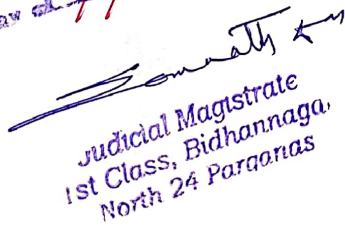 Judicial Magistrate
1st Class, Bidhannaga,
North 24 Parganas